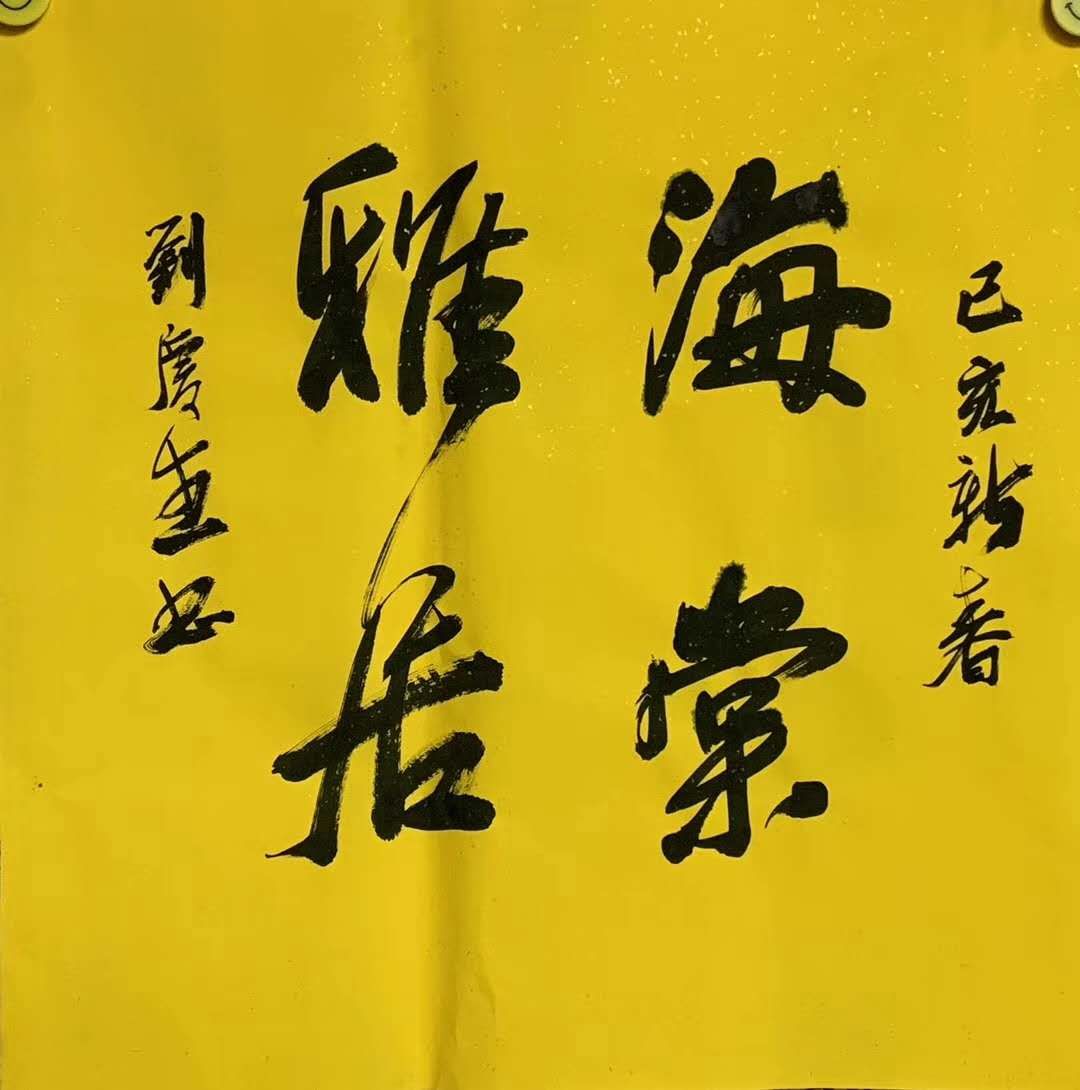 己亥新春
海棠
雅居
刘广生书